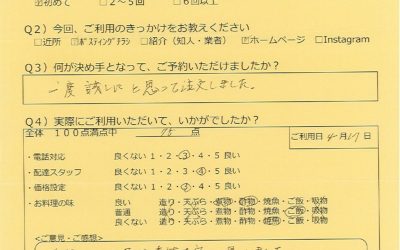 ☑初めて □2～5回 □6回以上
Q2）今回、ご利用のきっかけをお教えください
□近所 ☑ポスティングチラシ □紹介（知人・業者） ☑ホームページ □Instagram
Q3）何が決め手となって、ご予約いただけましたか？
一度試しにと思って注文しました。
Q4）実際にご利用いただいて、いかがでしたか？
全体 100点満点中 95 点
ご利用日 4・17
・電話対応 良くない 1・2・3・4・5 良い
・配達スタッフ 良くない 1・2・3・4・5 良い
・価格設定 良くない 1・2・3・4・5 良い
・お料理の味 良い 造り・天ぷら・煮物・酢物・焼魚・ご飯・吸物
普通 造り・天ぷら・煮物・酢物・焼魚・ご飯・吸物
良くない 造り・天ぷら・煮物・酢物・焼魚・ご飯・吸物
＜ご意見・ご感想＞